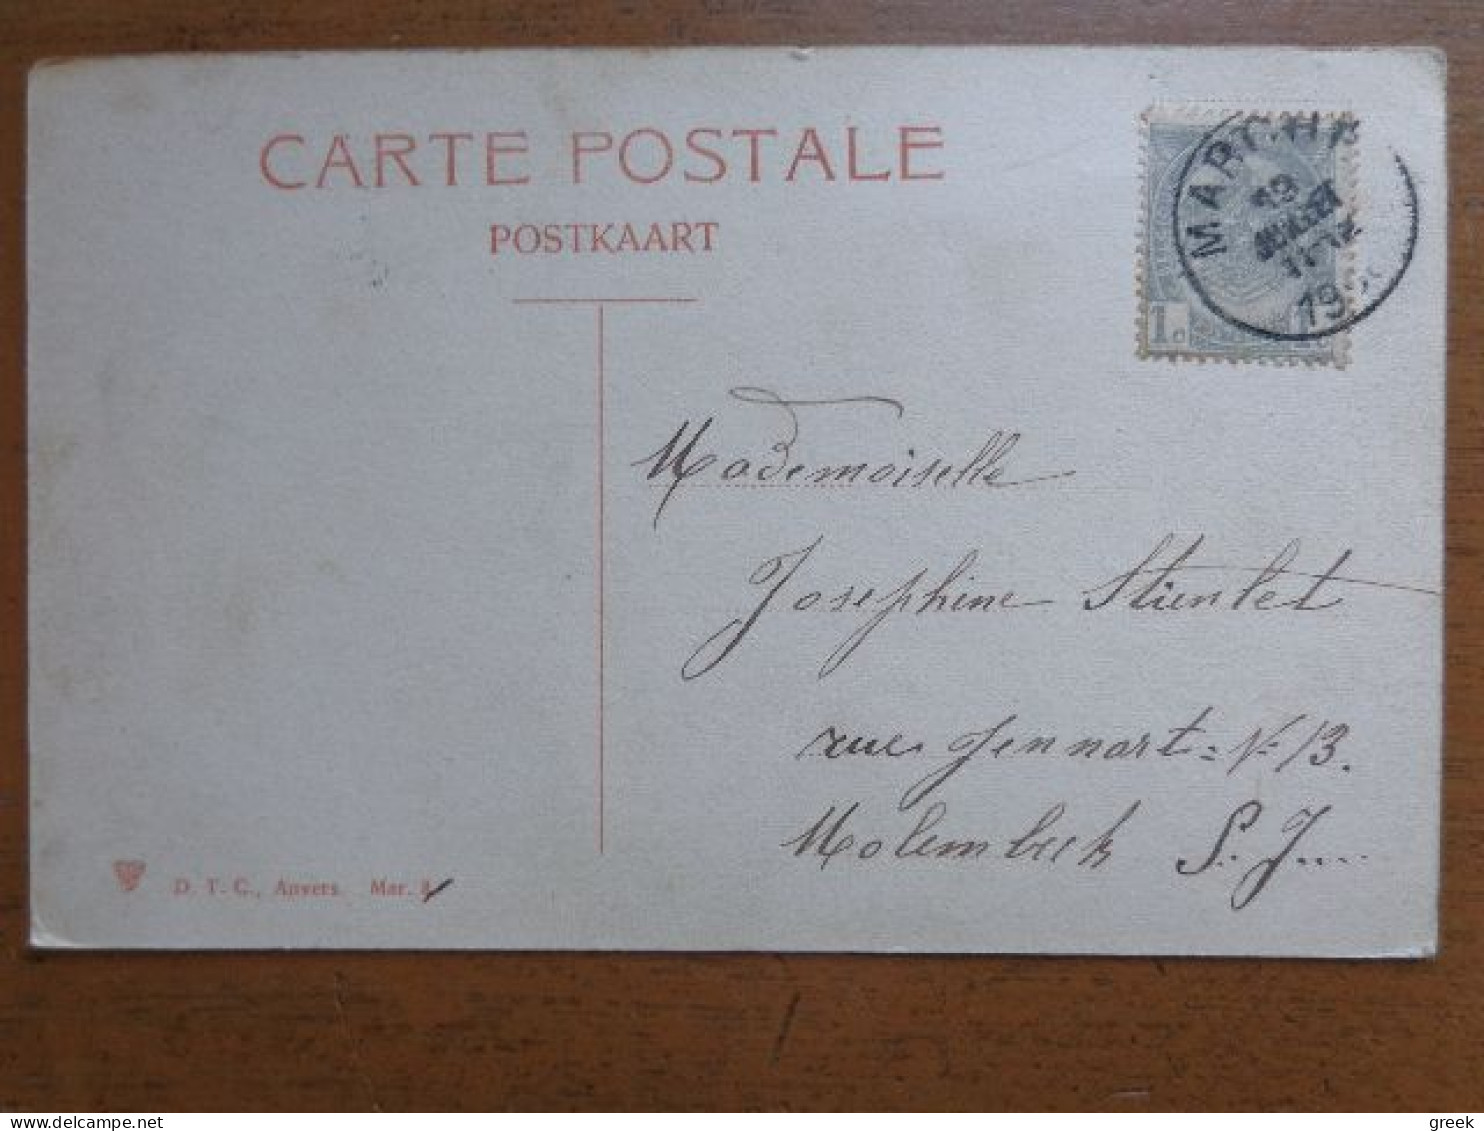 CARTE POSTALE
POSTKAART
19
JUILLET
19
1c
Mademoiselle
Josephine Stienlet
rue Jennart = N 13.
Molembeek S. J....
D. T. C., Anvers. Mar. 8
greek